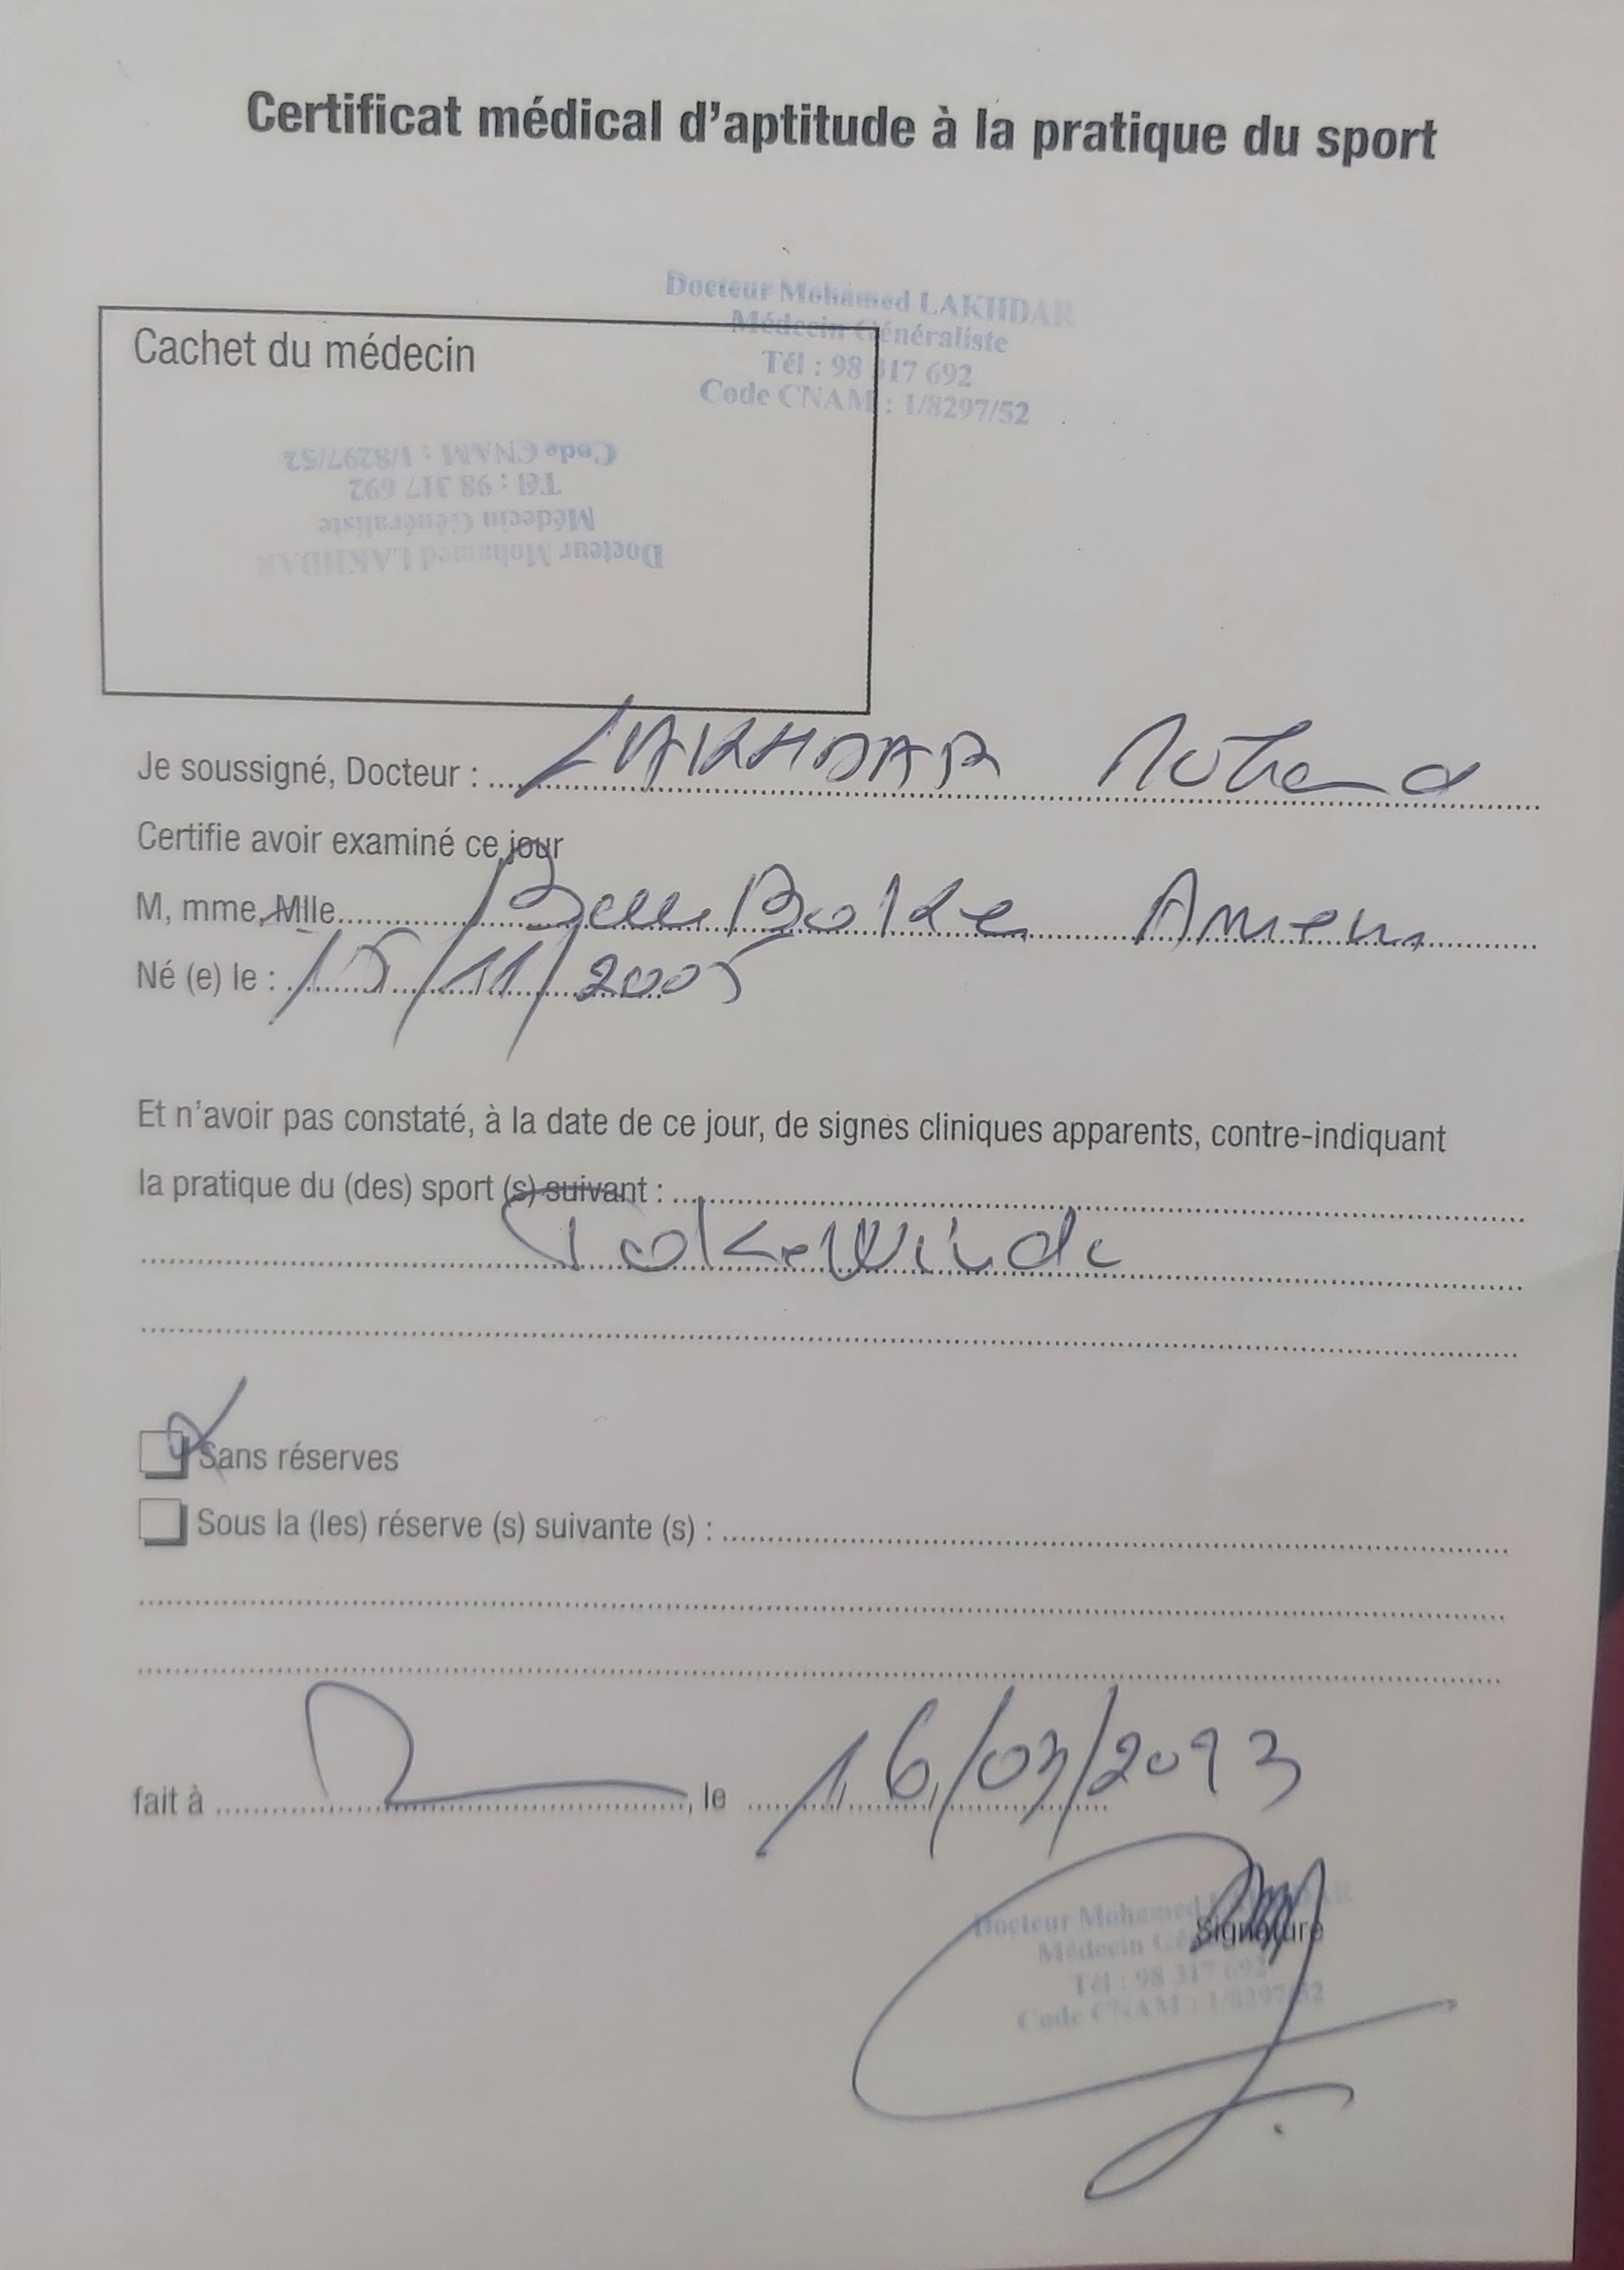 Certificat médical d'aptitude à la pratique du sport
Docteur Mohamed LAKHDAR
Médecin Généraliste
Tél : 98 317 692
Code CNAM : 1/8297/52
Cachet du médecin
Docteur Mohamed LAKHDAR
Médecin Généraliste
Tél : 98 317 692
Code CNAM : 1/8297/52
Je soussigné, Docteur : LAKHDAR
Certifie avoir examiné ce jour
M, mme, Mlle
Né (e) le : 15/11/2005
Et n'avoir pas constaté, à la date de ce jour, de signes cliniques apparents, contre-indiquant
la pratique du (des) sport (s) suivant :
Sans réserves
Sous la (les) réserve (s) suivante (s) :
fait à , le 16/03/2023
Docteur Mohamed LAKHDAR
Signature
Médecin Généraliste
Tél : 98 317 692
Code CNAM : 1/8297/52